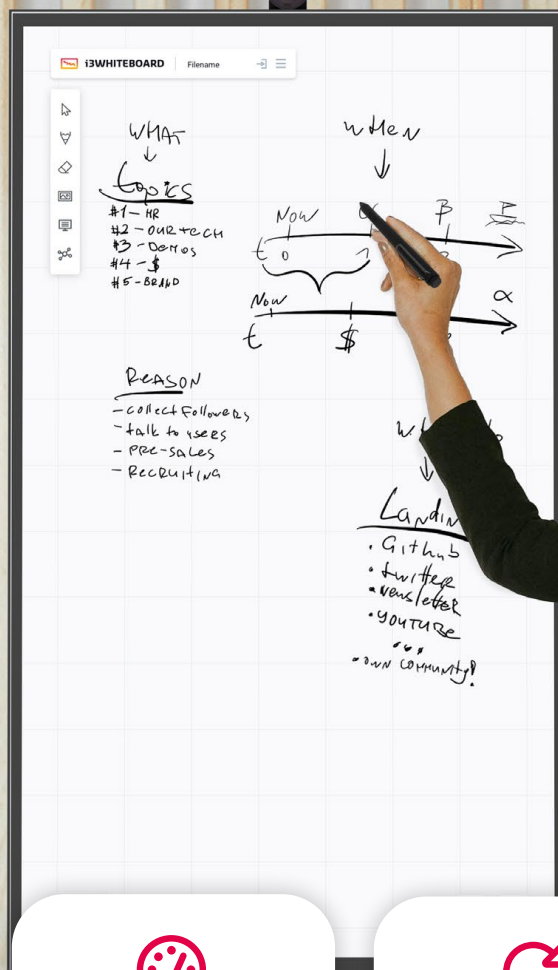 i3WHITEBOARD
Filename
WHAT
topics
#1 - HR
#2 - OUR tECH
#3 - DEMOS
#4 - $
#5 - BRAND
REASON
- collect Followers
- talk to users
- PRE-SALES
- RECRUITING
wHeN
Now
β
t
0
1
Now
α
t
$
Landin
• Github
• twitter
• newsletter
• YOUTUBE
...
• OWN COMMUNITY!